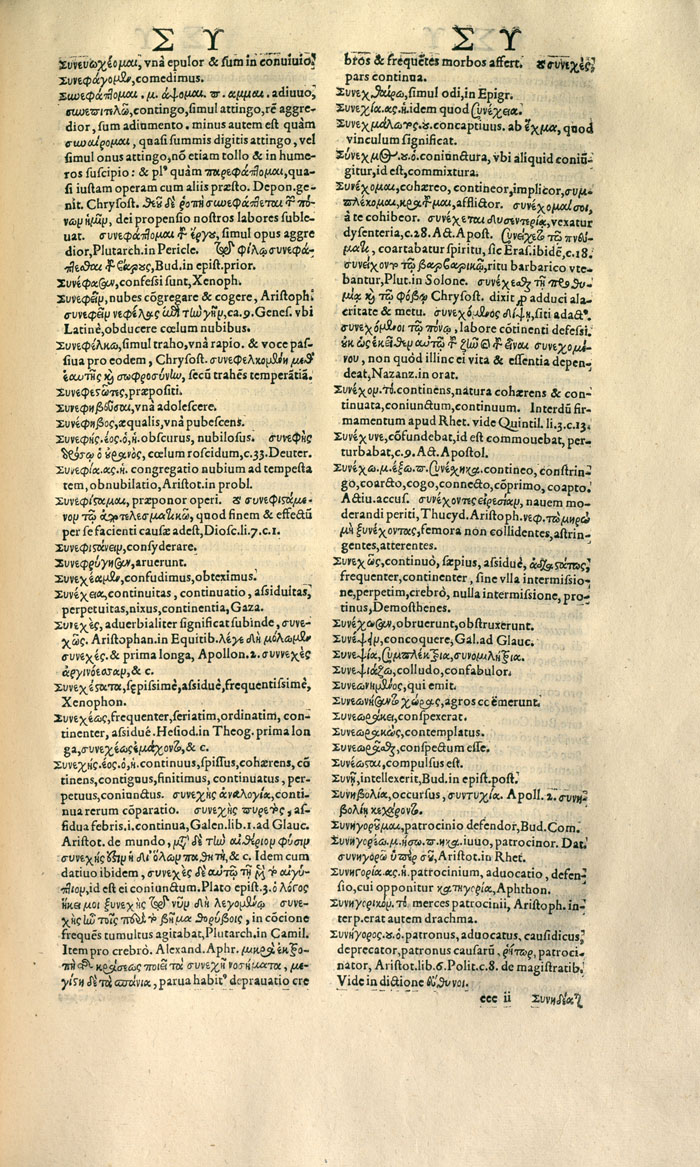 Σ Υ
Συνευωχέομαι, vnà epulor & sum in conuiuio.
Συνεφάγομεν, comedimus.
Συνεφάπτομαι. μ. άψομαι. π. αμμαι. adiuuo,
contingo, simul attingo, rē aggre-
dior, sum adiumento. minus autem est quàm
συναίρομαι, quasi summis digitis attingo, vel
simul onus attingo, nō etiam tollo & in hume-
ros suscipio: & plꝰ quàm παρεφάπτομαι, qua-
si iustam operam cum aliis præsto. Depon. ge-
nit. Chrysost. θεοῦ δὲ ῥοπὴ συνεφάπτεται τῶν πό-
νων ἡμῶν, dei propensio nostros labores suble-
uat. συνεφάπτομαι τοῦ ἔργου, simul opus aggre
dior, Plutarch. in Pericle. συνεφά-
πτεσθαι Bud. in epist. prior.
Συνέφασαν, confessi sunt, Xenoph.
Συνεφεῖν, nubes cōgregare & cogere, Aristoph.
συνεφεῖν νεφέλας ἐπὶ τὴν γῆν, ca. 9. Genes. vbi
Latinè, obducere cœlum nubibus.
Συνεφέλκω, simul traho, vnà rapio. & voce pas-
siua pro eodem, Chrysost. συνεφελκομένη μεθ'
ἑαυτῆς καὶ σωφροσύνην, secū trahēs temperātiā.
Συνεφεστῶτες, præpositi.
Συνεφηβοῦσαι, vnà adolescere.
Συνέφηβος, æqualis, vnà pubescens.
Συνεφής. έος. ὁ, ἡ. obscurus, nubilosus. συνεφὴς
δρόσῳ ὁ οὐρανὸς, cœlum roscidum, c. 33. Deuter.
Συνεφία. ας. ἡ. congregatio nubium ad tempesta
tem, obnubilatio, Aristot. in probl.
Συνεφίσταμαι, præponor operi. συνεφιστάμε-
νον τῷ ἀποτελεσματικῷ, quod finem & effectū
per se facienti causæ adest, Diosc. li. 7. c. 1.
Συνεφιστάνειν, consyderare.
Συνεφρύγησαν, aruerunt.
Συνεχέαμεν, confudimus, obteximus.
Συνέχεια, continuitas, continuatio, assiduitas,
perpetuitas, nixus, continentia, Gaza.
Συνεχὲς, aduerbialiter significat subinde, συνε-
χῶς. Aristophan. in Equitib. λέγε δὴ μόλωμεν
συνεχές. & prima longa, Apollon. 2. συνεχὲς
ἀργινόεσσαν, & c.
Συνεχέστατα, sępissimè, assiduè, frequentissimè,
Xenophon.
Συνεχέως, frequenter, seriatim, ordinatim, con-
tinenter, assiduè. Hesiod. in Theog. prima lon
ga, συνεχέως ἐμάχοντο, & c.
Συνεχής. έος. ὁ, ἡ. continuus, spissus, cohærens, cō
tinens, contiguus, finitimus, continuatus, per-
petuus, coniunctus. συνεχὴς ἀναλογία, conti-
nua rerum cōparatio. συνεχὴς πυρετὸς, as-
sidua febris. i. continua, Galen. lib. 1. ad Glauc.
Aristot. de mundo, μετὰ δὲ τὴν αἰθέριον φύσιν
συνεχής ἐστιν ἡ δι' ὅλων παθητὴ, & c. Idem cum
datiuo ibidem, συνεχὲς δὲ αὐτῷ τῇ γῇ τὸ αἰγύ-
πτιον, id est ei coniunctum. Plato epist. 3. ὁ λόγος
ἥκει μοι ξυνεχὴς τῷ νῦν δὴ λεγομένῳ συνε-
χὴς ἦν τοῖς περὶ τὸ βῆμα θορύβοις, in cōcione
frequēs tumultus agitabat, Plutarch. in Camil.
Item pro crebro. Alexand. Aphr. μικρὰ ἐκτρο-
πὴ τῆς κράσεως ποιεῖ τὰ συνεχῆ νοσήματα, με-
γίστη δὲ τὰ σπάνια, parua habitꝰ deprauatio cre
Σ Υ
bros & frequētes morbos affert. συνεχὲς,
pars continua.
Συνεχθαίρω, simul odi, in Epigr.
Συνεχία. ας. ἡ. idem quod συνέχεια.
Συνεχμάλωτος. ου. concaptiuus. ab ἔχμα, quod
vinculum significat.
Σύνεχμος. ου. ὁ. coniunctura, vbi aliquid coniūn-
gitur, id est, commixtura.
Συνέχομαι, cohæreo, contineor, implicor, συμ-
πλέκομαι, κρατοῦμαι, afflictor. συνέχομαί σοι,
à te cohibeor. συνέχεται δυσεντερίᾳ, vexatur
dysenteria, c. 28. Act. Apost. Συνείχετο τῷ πνεύ-
ματι, coartabatur spiritu, sic Eras. ibidē, c. 18.
συνείχοντο τῷ βαρβαρικῷ, ritu barbarico vte-
bantur, Plut. in Solone. συνέχεσθαι τῇ προθυ-
μίᾳ καὶ τῷ φόβῳ Chrysost. dixit ꝓ adduci ala-
critate & metu. συνεχόμενος δίψῃ, siti adactꝰ.
συνεχόμενοι τῷ πόνῳ, labore cōtinenti defessi.
οὐκ ὡς ἐκεῖθεν αὐτῷ τοῦ ζῆν καὶ τοῦ εἶναι συνεχομέ-
νου, non quod illinc ei vita & essentia depen-
deat, Nazanz. in orat.
Συνέχον. τό. continens, natura cohærens & con-
tinuata, coniunctum, continuum. Interdū fir-
mamentum apud Rhet. vide Quintil. li. 3. c. 13.
Συνέχυνε, cōfundebat, id est commouebat, per-
turbabat, c. 9. Act. Apostol.
Συνέχω. μ. έξω. π. Συνέχηκα. contineo, constrin-
go, coarcto, cogo, connecto, cōprimo, coapto.
Actiu. accus. συνέχοντες εἰρεσίαν, nauem mo-
derandi periti, Thucyd. Aristoph. νεφ. τὼ μηρὼ
μὴ ξυνέχοντας, femora non collidentes, astrin-
gentes, atterentes.
Συνεχῶς, continuò, sæpius, assiduè, ἀδιαστάτως,
frequenter, continenter, sine vlla intermissio-
ne, perpetim, crebrò, nulla intermissione, pro-
tinus, Demosthenes.
Συνέχωσαν, obruerunt, obstruxerunt.
Συνεψεῖν, concoquere, Gal. ad Glauc.
Συνεψία, συμπλέκτρια, συνομιλήτρια.
Συνεψιάζω, colludo, confabulor.
Συνεωνημένος, qui emit.
Συνεωνήσαντο χώρας, agros coëmerunt.
Συνεωράκει, conspexerat.
Συνεωρακὼς, contemplatus.
Συνεωρᾶσθαι, conspectum esse.
Συνέωσται, compulsus est.
Συνῇ, intellexerit, Bud. in epist. post.
Συνηβολία, occursus, συντυχία. Apoll. 2. συνη-
βολίη κεχάροντο.
Συνηγοροῦμαι, patrocinio defendor, Bud. Com.
Συνηγορέω. μ. ήσω. π. ηκα. iuuo, patrocinor. Dat.
συνηγορῶ ὑπέρ σου, Aristot. in Rhet.
Συνηγορία. ας. ἡ. patrocinium, aduocatio, defen-
sio, cui opponitur κατηγορία, Aphthon.
Συνηγορικόν. τό. merces patrocinii, Aristoph. in-
terp. erat autem drachma.
Συνήγορος. ου. ὁ. patronus, aduocatus, causidicus,
deprecator, patronus causarū, ῥήτωρ, patroci-
nator, Aristot. lib. 6. Polit. c. 8. de magistratib.
Vide in dictione εὔθυνοι.
ccc ii Συνηδέατο